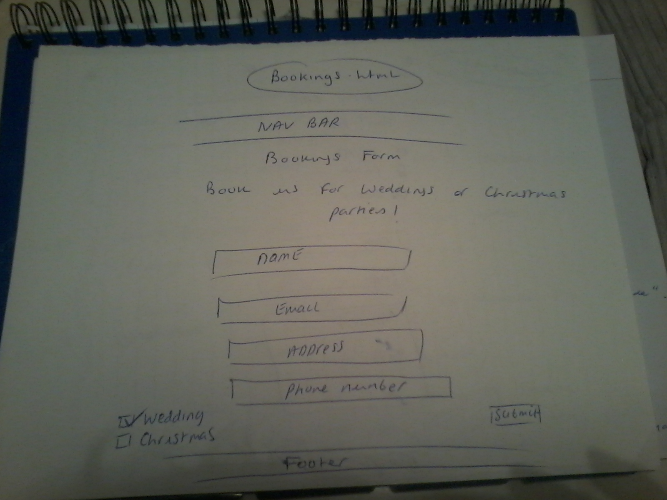 Bookings.html
NAV BAR
Bookings Form
Book us for Weddings or Christmas
parties!
NAME
Email
ADDRESS
Phone number
Wedding
SUBMIT
Christmas
Footer